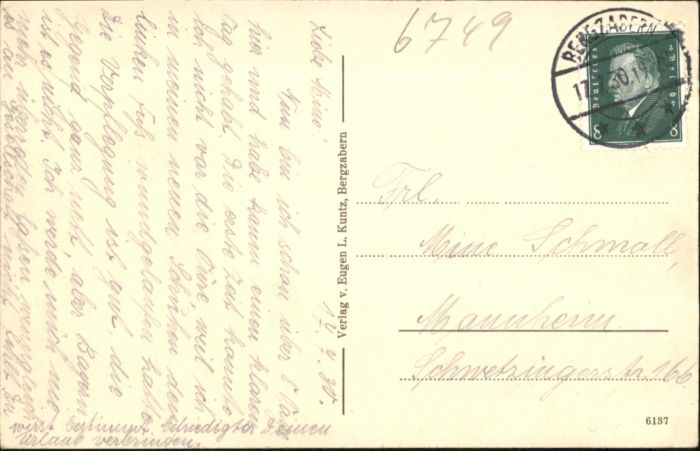 6749
BERGZABERN
17. 7. 30. 19
Deutsches Reich
8 8
17. 7. 30.
Liebe Mine!
Nun bin ich schon über 8 Tage
hier und habe kaum einen klaren
Tag gehabt. Die erste Zeit konnte
ich nicht vor die Türe weil ich
in meinen neuen Schuhen den
linken Fuß wundgelaufen hatte
Die Verpflegung ist gut, die
Gegend ganz nett, aber Bayern
ist es nicht. Ich werde mich
mein
ist an Gesellschaft nicht
wirst bestimmt befriedigter Deinen
Urlaub verbringen.
Verlag v. Eugen L. Kuntz, Bergzabern
Frl.
Mine Schmall,
Mannheim
Schwetzingerstr 166
6137